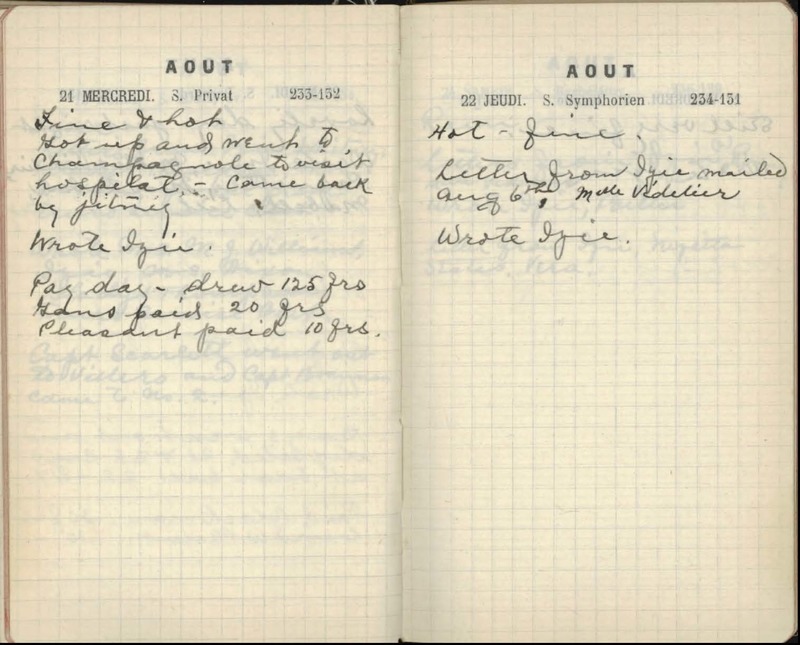 AOUT
21 MERCREDI. S. Privat 233-132
Fine & hot
Got up and went to
Champagnole to visit
hospital, - Came back
by jitney
Wrote Izie.
Pay day - drew 125 frs
Gans paid 20 frs
Pleasant paid 10 frs.
AOUT
22 JEUDI. S. Symphorien 234-131
Hot - fine.
Letter from Izie mailed
Aug 6th, Mlle Videlier
Wrote Izie.